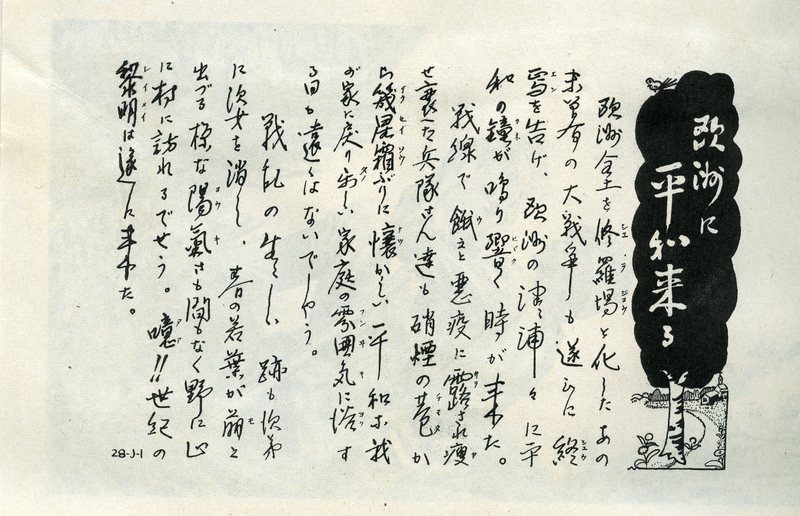 欧洲に
平和来る
欧洲全土を修羅場と化したあの
未曽有の大戦争も遂に終
焉を告げ、欧洲の津々浦々に平
和の鐘が鳴り響く時が来た。
戦線で餓えと悪疫に露され痩
せ衰えた兵隊さん達も硝煙の巷か
ら幾星霜ぶりに懐かしい平和な我
が家に戻り楽しい家庭の雰囲気に浴す
る日も遠くはないでしやう。
戦乱の生々しい跡も次第
に姿を消し、春の若葉が萠え
出づる様な陽氣さも間もなく野に山
に村に訪れるでせう。噫!!世紀の
黎明は遂に来た。
28-J-1